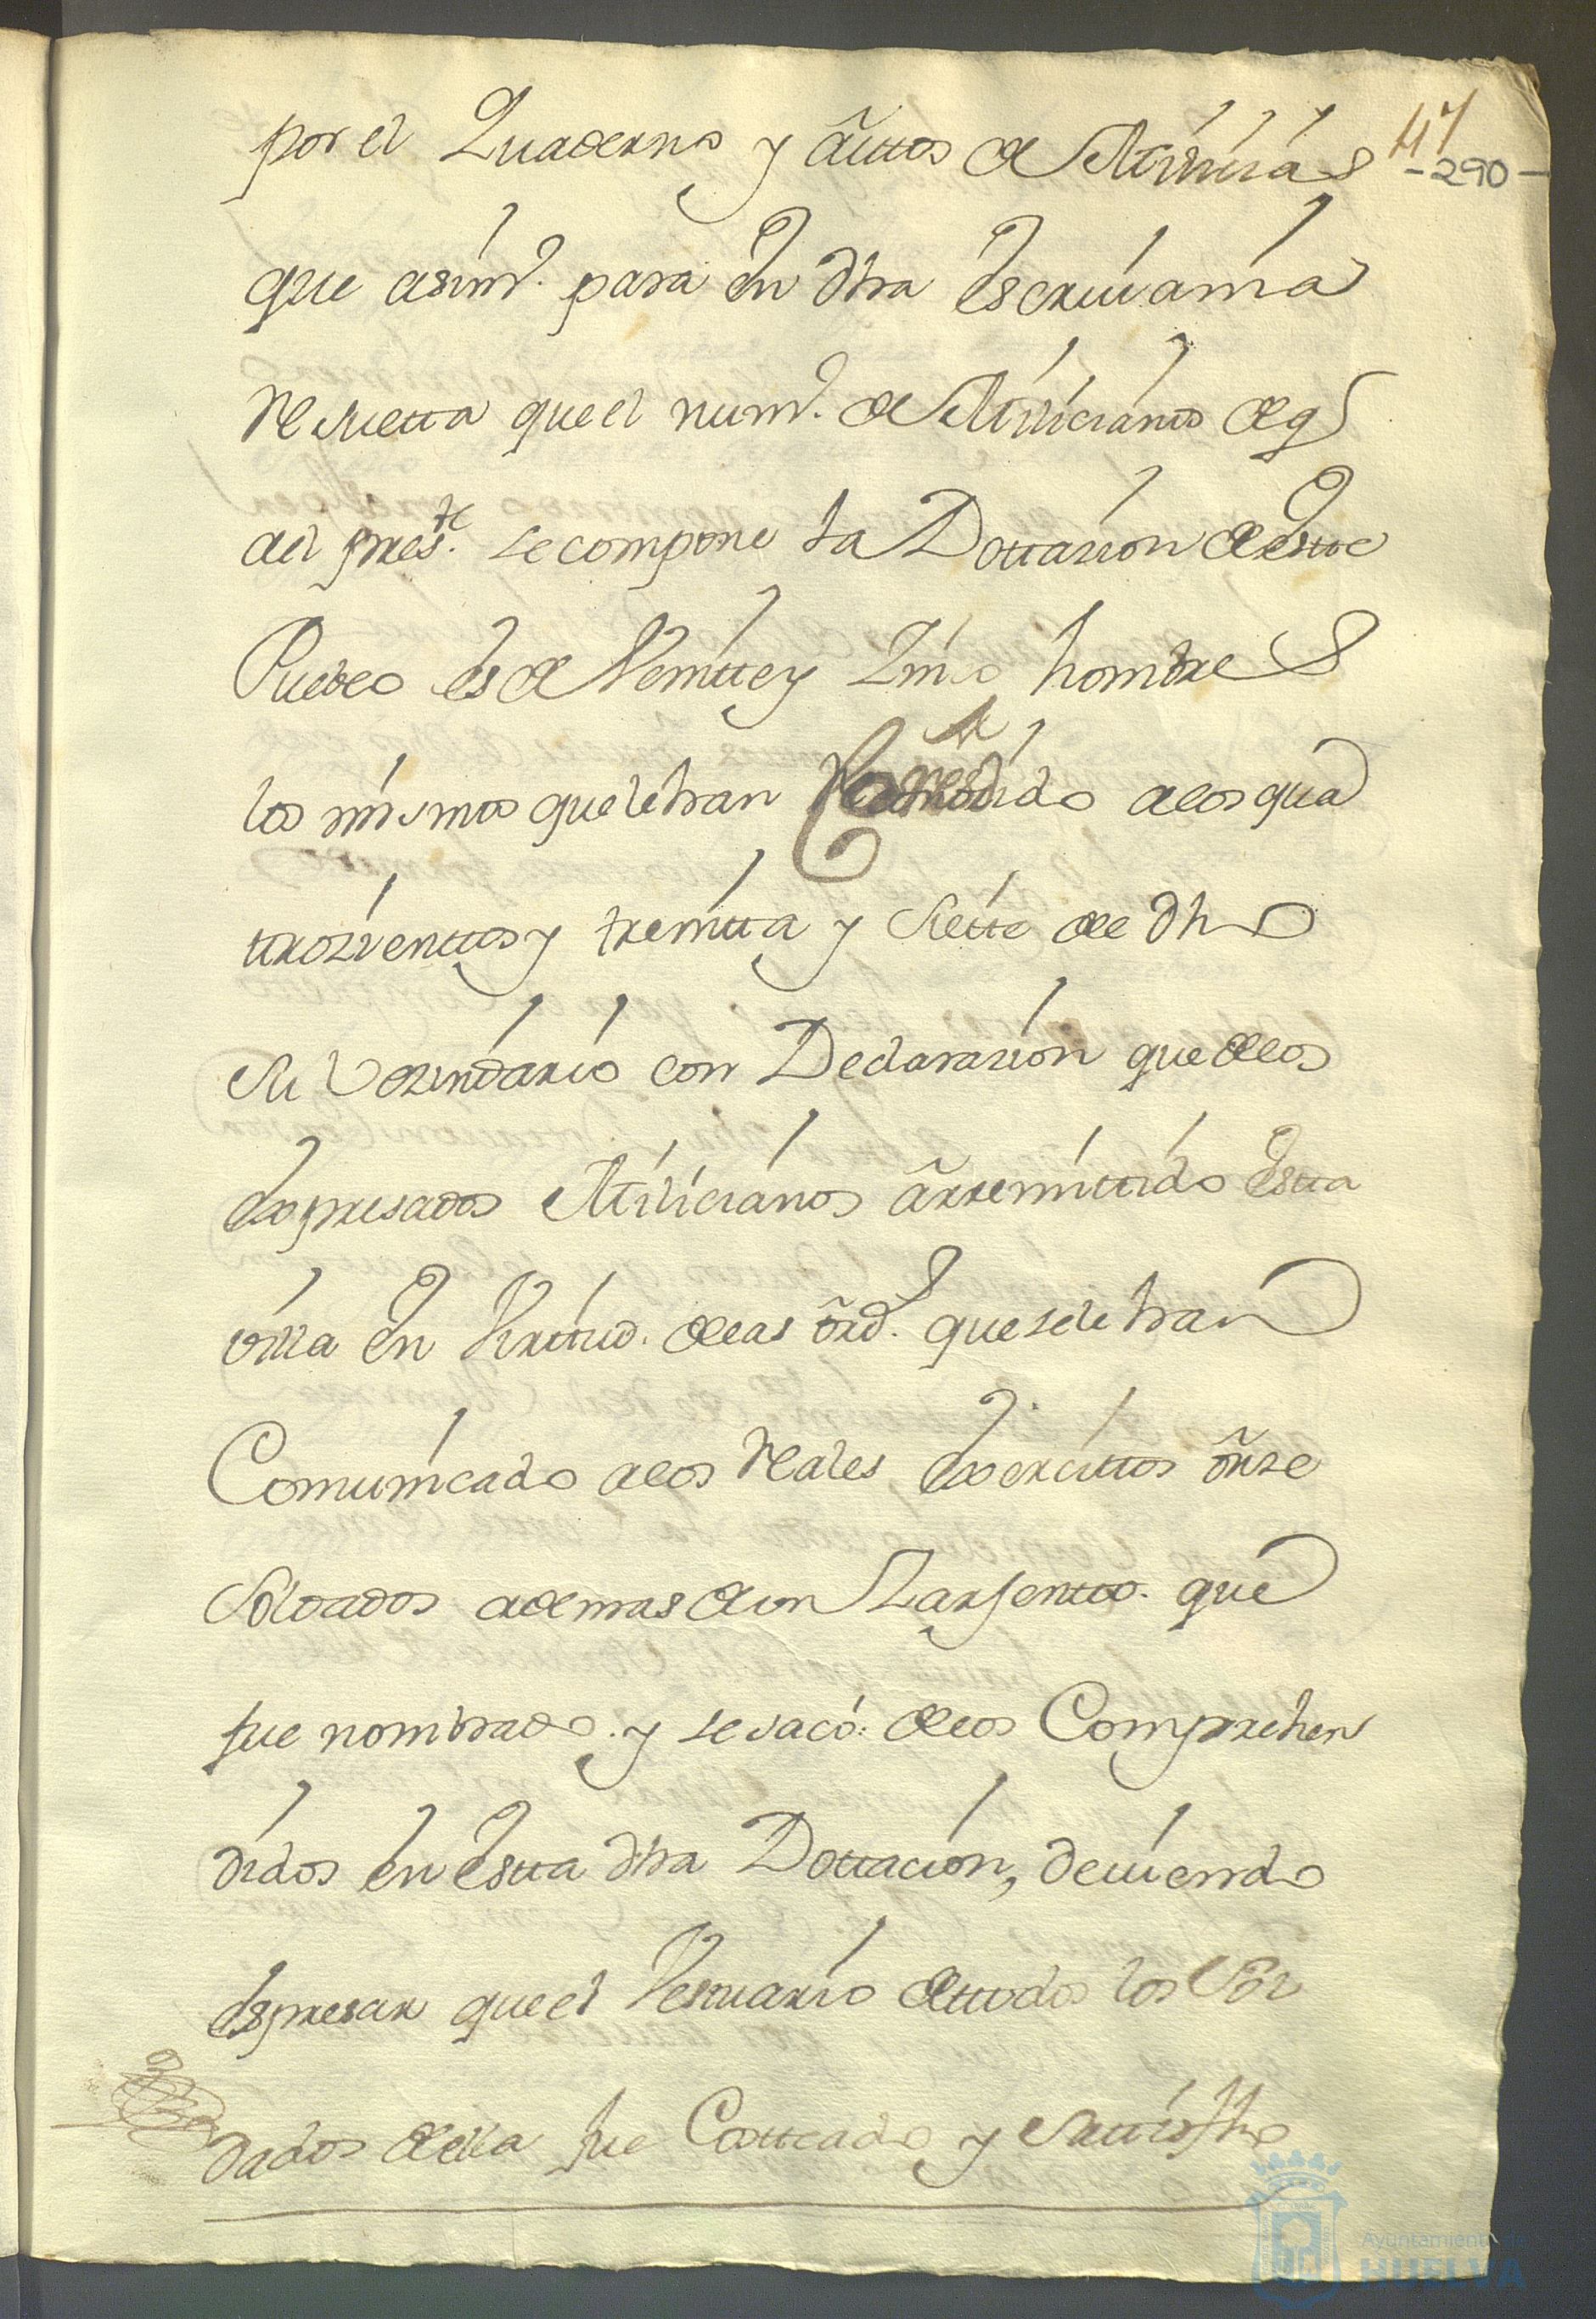 por el Quaderno y autos de Milicias
47
-290-
que asimº. para en dha escriuania
Resuetta que el numº. de Milicianos de q
al presᵗᵉ. se compone la Dottazion de este
Pueblo es de Veintte y Zinco hombres
los mismos que le han correspondido a los qua
trozienttos y treintta y siette de dho
su Vezindario con Declarazion que de los
expresados Milicianos a rremittido estta
villa en Virttud. de las ordˢ. que se le han
Comunicado a los Reales exercittos onze
soldados ademas de un Zarjentto. que
fue nombrado. y se sacó: de los Comprehen
didos en estta dha Dottacion, deuiendo
espresar que el Vestuario de ttodos los Sol
dados de ella fue Costteado y sattisfho
Ayuntamiento de
HUELVA